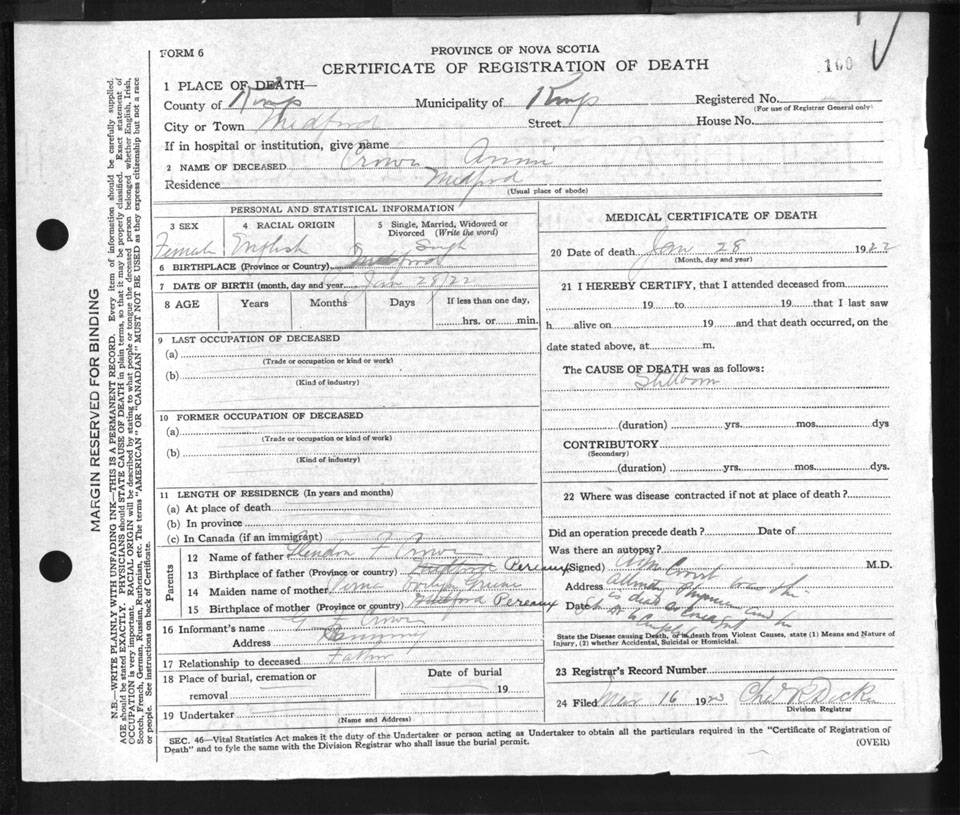 FORM 6
PROVINCE OF NOVA SCOTIA
CERTIFICATE OF REGISTRATION OF DEATH
160
1 PLACE OF DEATH—
County of Kings Municipality of Kings Registered No.
(For use of Registrar General only)
City or Town Medford Street House No.
If in hospital or institution, give name
2 NAME OF DECEASED Crowe Annie
Residence Medford
(Usual place of abode)
PERSONAL AND STATISTICAL INFORMATION
3 SEX 4 RACIAL ORIGIN 5 Single, Married, Widowed or Divorced (Write the word)
Female English Single
6 BIRTHPLACE (Province or Country) Medford
7 DATE OF BIRTH (month, day and year) Jan 28/22
8 AGE Years Months Days If less than one day,
hrs. or min.
9 LAST OCCUPATION OF DECEASED
(a)
(Trade or occupation or kind or work)
(b)
(Kind of industry)
10 FORMER OCCUPATION OF DECEASED
(a)
(Trade or occupation or kind of work)
(b)
(Kind of industry)
11 LENGTH OF RESIDENCE (In years and months)
(a) At place of death
(b) In province
(c) In Canada (if an immigrant)
Parents
12 Name of father F Crowe
13 Birthplace of father (Province or country) Medford Pereaux
14 Maiden name of mother
15 Birthplace of mother (Province or country) Medford Pereaux
16 Informant's name G F Crowe
Address
17 Relationship to deceased Father
18 Place of burial, cremation or removal Date of burial
19
19 Undertaker
(Name and Address)
MEDICAL CERTIFICATE OF DEATH
20 Date of death Jan 28 1922
(Month, day and year)
21 I HEREBY CERTIFY, that I attended deceased from
19 to 19 that I last saw
h alive on 19 and that death occurred, on the
date stated above, at m.
The CAUSE OF DEATH was as follows:
Stillborn
(duration) yrs. mos. dys
CONTRIBUTORY
(Secondary)
(duration) yrs. mos. dys.
22 Where was disease contracted if not at place of death?
Did an operation precede death? Date of
Was there an autopsy?
(Signed) M.D.
Address
Date
State the Disease causing Death, or in death from Violent Causes, state (1) Means and Nature of
Injury, (2) whether Accidental, Suicidal or Homicidal.
23 Registrar's Record Number
24 Filed Mar 16 1923
Division Registrar
SEC. 46—Vital Statistics Act makes it the duty of the Undertaker or person acting as Undertaker to obtain all the particulars required in the "Certificate of Registration of
Death" and to fyle the same with the Division Registrar who shall issue the burial permit. (OVER)
MARGIN RESERVED FOR BINDING
N.B.—WRITE PLAINLY WITH UNFADING INK—THIS IS A PERMANENT RECORD. Every item of information should be carefully supplied.
AGE should be stated EXACTLY. PHYSICIANS should STATE CAUSE OF DEATH in plain terms, so that it may be properly classified. Exact statement of
OCCUPATION is very important. RACIAL ORIGIN will be described by stating to what people or tongue the deceased person belonged whether English, Irish,
Scotch, French, German, Russian, Ruthenian, etc. The terms "AMERICAN" OR "CANADIAN" MUST NOT BE USED as they express citizenship but not a race
or people. See instructions on back of Certificate.